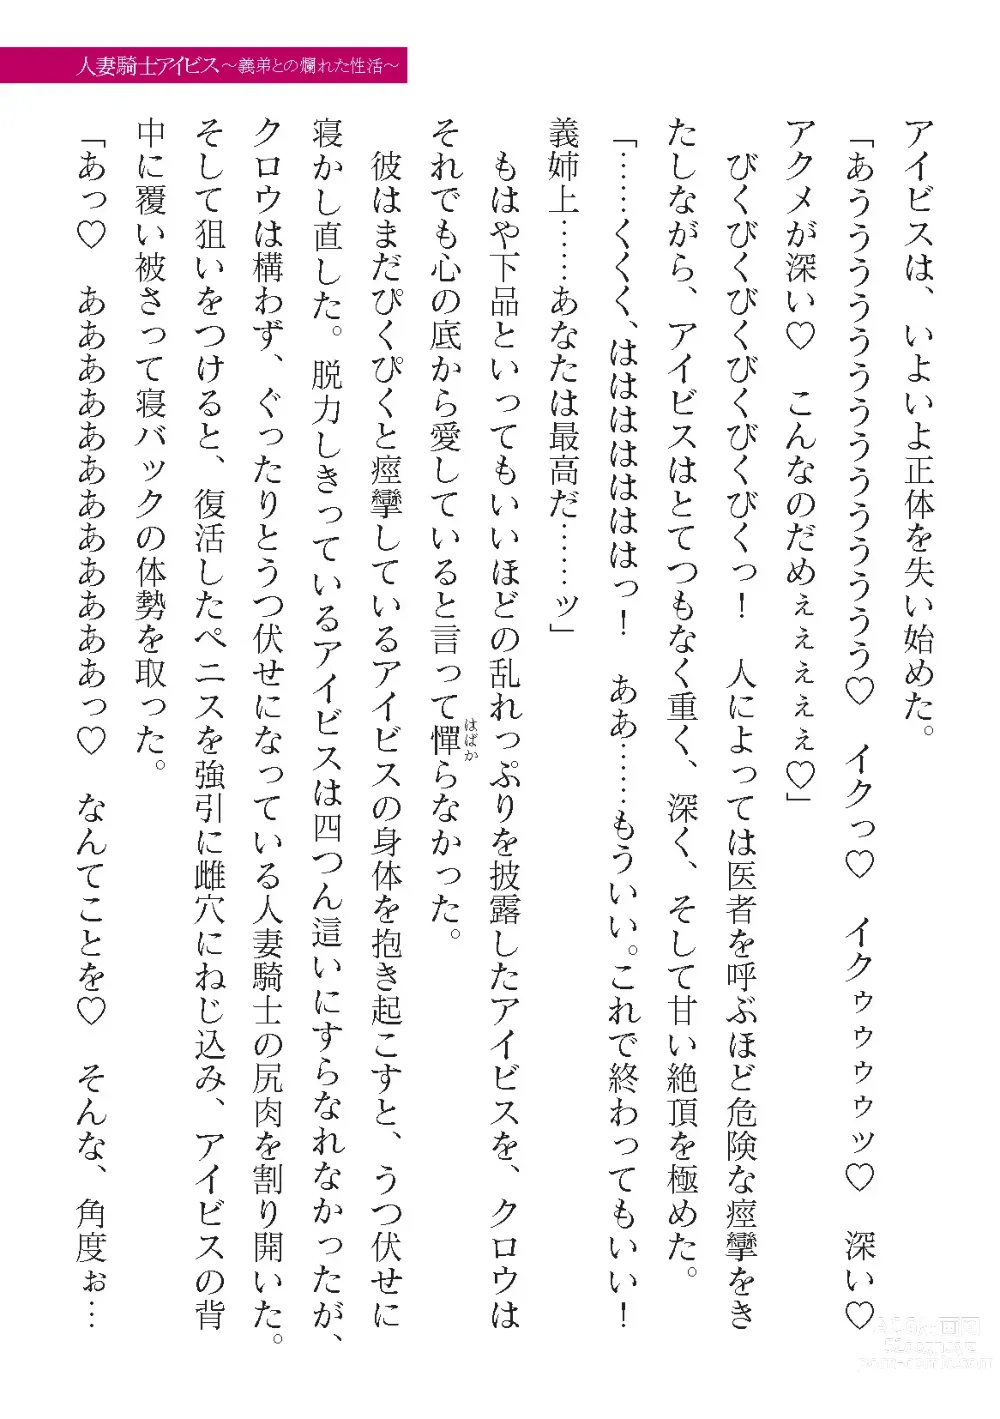 人妻騎士アイビス～義弟との爛れた性活～
アイビスは、いよいよ正体を失い始めた。
「あううううううううううううう♡　イクっ♡　イクゥゥゥゥッ♡　深い♡
アクメが深い♡　こんなのだめぇぇぇぇぇ♡」
　びくびくびくびくびくびくっ！　人によっては医者を呼ぶほど危険な痙攣をき
たしながら、アイビスはとてつもなく重く、深く、そして甘い絶頂を極めた。
「……くくく、はははははははっ！　ああ……もういい。これで終わってもいい！
義姉上……あなたは最高だ……ッ」
　もはや下品といってもいいほどの乱れっぷりを披露したアイビスを、クロウは
それでも心の底から愛していると言って憚らなかった。
はばか
　彼はまだぴくぴくと痙攣しているアイビスの身体を抱き起こすと、うつ伏せに
寝かし直した。脱力しきっているアイビスは四つん這いにすらなれなかったが、
クロウは構わず、ぐったりとうつ伏せになっている人妻騎士の尻肉を割り開いた。
そして狙いをつけると、復活したペニスを強引に雌穴にねじ込み、アイビスの背
中に覆い被さって寝バックの体勢を取った。
「あっ♡　ああああああああああああっ♡　なんてことを♡　そんな、角度ぉ…